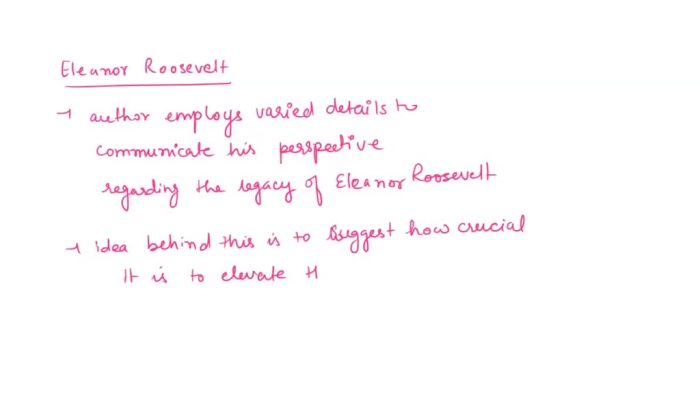 Eleanor Roosevelt
→ author employs varied details to
communicate his perspective
regarding the legacy of Eleanor Roosevelt
→ idea behind this is to suggest how crucial
It is to elevate